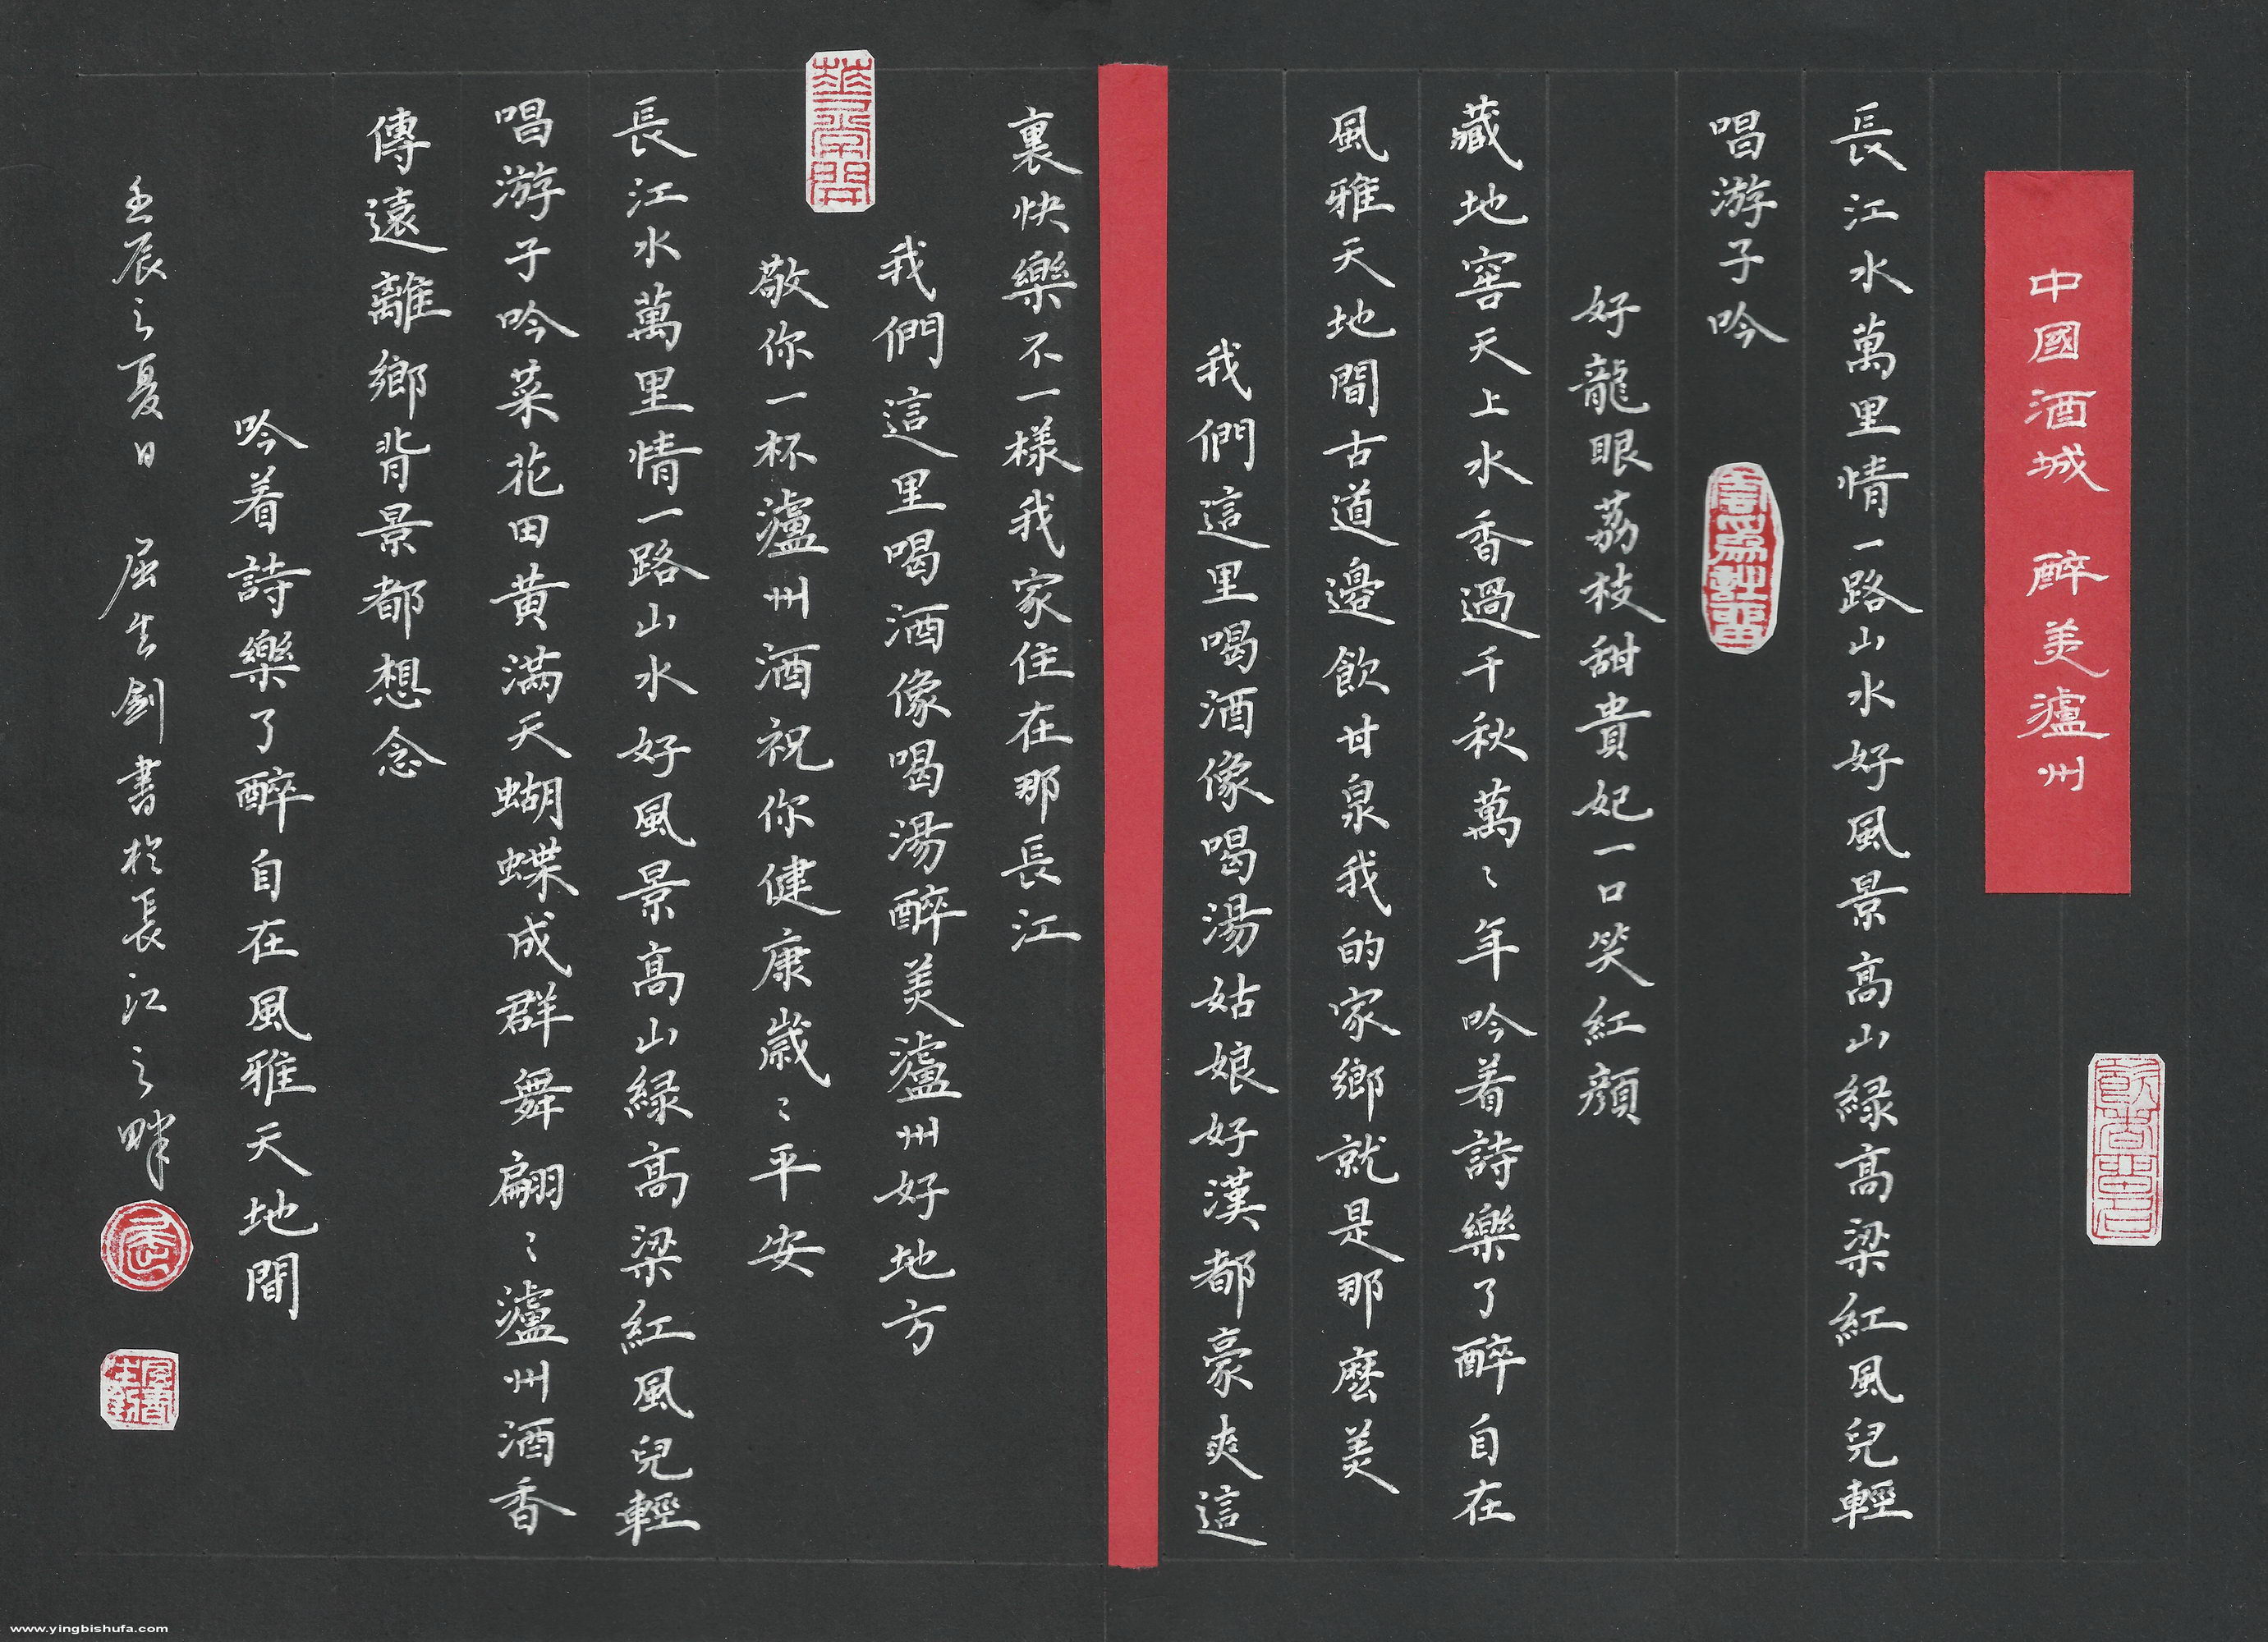 中國酒城 醉美瀘州
長江水萬里情一路山水好風景高山緑高梁紅風兒輕
唱游子吟
好龍眼荔枝甜貴妃一口笑紅顏
藏地窖天上水香過千秋萬〻年吟着詩樂了醉自在
風雅天地間古道邊飲甘泉我的家鄉就是那麽美
我們這里喝酒像喝湯姑娘好漢都豪爽這
裏快樂不一樣我家住在那長江
我們這里喝酒像喝湯醉美瀘州好地方
敬你一杯瀘州酒祝你健康歲〻平安
長江水萬里情一路山水好風景高山緑高梁紅風兒輕
唱游子吟菜花田黄滿天蝴蝶成群舞翩〻瀘州酒香
傳遠離鄉背景都想念
吟着詩樂了醉自在風雅天地間
壬辰之夏日 屈生劍書於長江之畔
www.yingbishufa.com